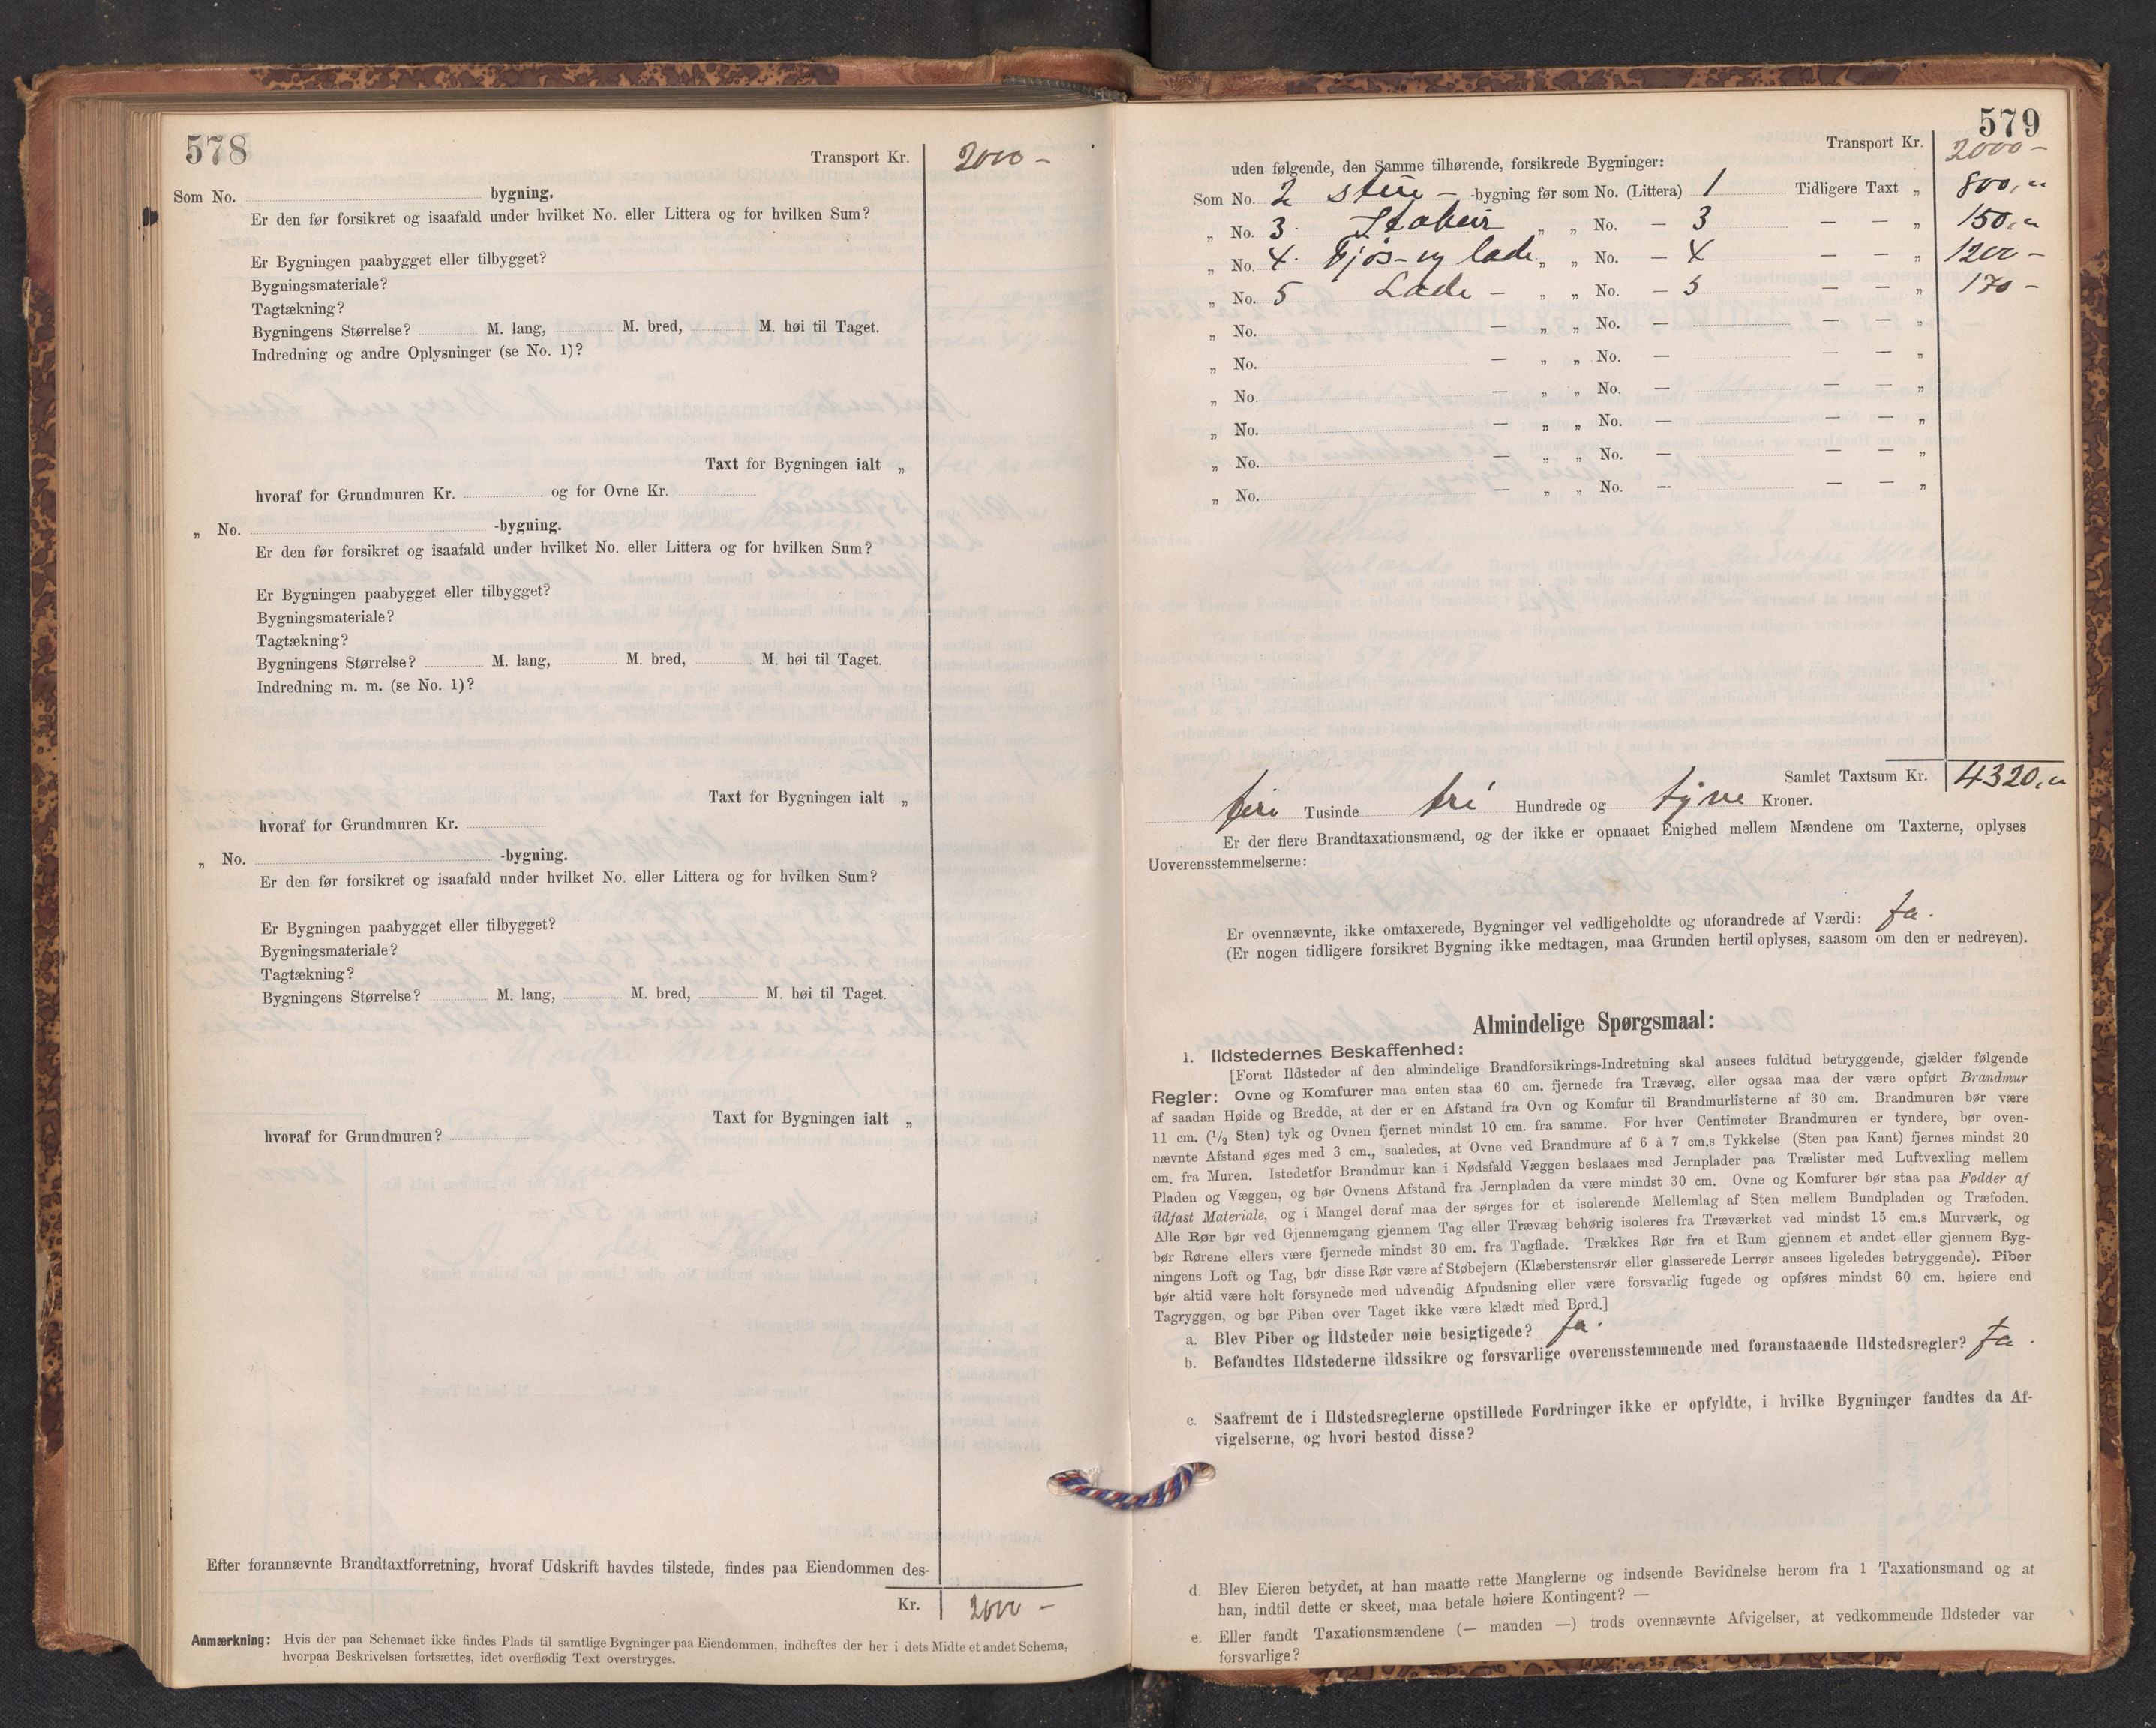 578
Transport Kr. 2000 –
Som No. bygning.
Er den før forsikret og isaafald under hvilket No. eller Littera og for hvilken Sum?
Er Bygningen paabygget eller tilbygget?
Bygningsmateriale?
Tagtækning?
Bygningens Størrelse? M. lang, M. bred, M. høi til Taget.
Indredning og andre Oplysninger (se No. 1)?
Taxt for Bygningen ialt „
hvoraf for Grundmuren Kr. og for Ovne Kr.
„ No. -bygning.
Er den før forsikret og isaafald under hvilket No. eller Littera og for hvilken Sum?
Er Bygningen paabygget eller tilbygget?
Bygningsmateriale?
Tagtækning?
Bygningens Størrelse? M. lang, M. bred, M. høi til Taget.
Indredning m. m. (se No. 1)?
Taxt for Bygningen ialt „
hvoraf for Grundmuren Kr.
„ No. -bygning.
Er den før forsikret og isaafald under hvilket No. eller Littera og for hvilken Sum?
Er Bygningen paabygget eller tilbygget?
Bygningsmateriale?
Tagtækning?
Bygningens Størrelse? M. lang, M. bred, M. høi til Taget.
Taxt for Bygningen ialt „
hvoraf for Grundmuren?
Efter forannævnte Brandtaxtforretning, hvoraf Udskrift havdes tilstede, findes paa Eiendommen des-
Kr. 2000 –
Anmærkning: Hvis der paa Schemaet ikke findes Plads til samtlige Bygninger paa Eiendommen, indheftes der her i dets Midte et andet Schema,
hvorpaa Beskrivelsen fortsættes, idet overflødig Text overstryges.
579
Transport Kr. 2000 –
uden følgende, den Samme tilhørende, forsikrede Bygninger:
Som No. 2 stue – -bygning før som No. (Littera) 1 Tidligere Taxt „ 800, „
„ No. 3. Stabur „ „ No. — 3 — — „ 150, „
„ No. 4. Fjøs- og lade „ „ No. — 4 — — „ 1200 –
„ No. 5 Lade – „ „ No. — 5 — — „ 170 –
„ No. — „ „ No. — — — „
„ No. — „ „ No. — — — „
„ No. — „ „ No. — — — „
„ No. — „ „ No. — — — „
„ No. — „ „ No. — — — „
„ No. — „ „ No. — — — „
Samlet Taxtsum Kr. 4320, „
fire Tusinde tri Hundrede og tyve Kroner.
Er der flere Brandtaxationsmænd, og der ikke er opnaaet Enighed mellem Mændene om Taxterne, oplyses
Uoverensstemmelserne:
Er ovennævnte, ikke omtaxerede, Bygninger vel vedligeholdte og uforandrede af Værdi: Ja.
(Er nogen tidligere forsikret Bygning ikke medtagen, maa Grunden hertil oplyses, saasom om den er nedreven).
Almindelige Spørgsmaal:
1. Ildstedernes Beskaffenhed:
[Forat Ildsteder af den almindelige Brandforsikrings-Indretning skal ansees fuldtud betryggende, gjælder følgende
Regler: Ovne og Komfurer maa enten staa 60 cm. fjernede fra Trævæg, eller ogsaa maa der være opført Brandmur
af saadan Høide og Bredde, at der er en Afstand fra Ovn og Komfur til Brandmurlisterne af 30 cm. Brandmuren bør være
11 cm. (1/2 Sten) tyk og Ovnen fjernet mindst 10 cm. fra samme. For hver Centimeter Brandmuren er tyndere, bør oven-
nævnte Afstand øges med 3 cm., saaledes, at Ovne ved Brandmure af 6 à 7 cm.s Tykkelse (Sten paa Kant) fjernes mindst 20
cm. fra Muren. Istedetfor Brandmur kan i Nødsfald Væggen beslaaes med Jernplader paa Trælister med Luftvexling mellem
Pladen og Væggen, og bør Ovnens Afstand fra Jernpladen da være mindst 30 cm. Ovne og Komfurer bør staa paa Fødder af
ildfast Materiale, og i Mangel deraf maa der sørges for et isolerende Mellemlag af Sten mellem Bundpladen og Træfoden.
Alle Rør bør ved Gjennemgang gjennem Tag eller Trævæg behørig isoleres fra Træværket ved mindst 15 cm.s Murværk, og
bør Rørene ellers være fjernede mindst 30 cm. fra Tagflade. Trækkes Rør fra et Rum gjennem et andet eller gjennem Byg-
ningens Loft og Tag, bør disse Rør være af Støbejern (Klæberstensrør eller glasserede Lerrør ansees ligeledes betryggende). Piber
bør altid være helt forsynede med udvendig Afpudsning eller være forsvarlig fugede og opføres mindst 60 cm. høiere end
Tagryggen, og bør Piben over Taget ikke være klædt med Bord.]
a. Blev Piber og Ildsteder nøie besigtigede? Ja.
b. Befandtes Ildstederne ildssikre og forsvarlige overensstemmende med foranstaaende Ildstedsregler? Ja.
c. Saafremt de i Ildstedsreglerne opstillede Fordringer ikke er opfyldte, i hvilke Bygninger fandtes da Af-
vigelserne, og hvori bestod disse?
d. Blev Eieren betydet, at han maatte rette Manglerne og indsende Bevidnelse herom fra 1 Taxationsmand og at
han, indtil dette er skeet, maa betale høiere Kontingent? —
e. Eller fandt Taxationsmændene (— manden —) trods ovennævnte Afvigelser, at vedkommende Ildsteder var
forsvarlige?